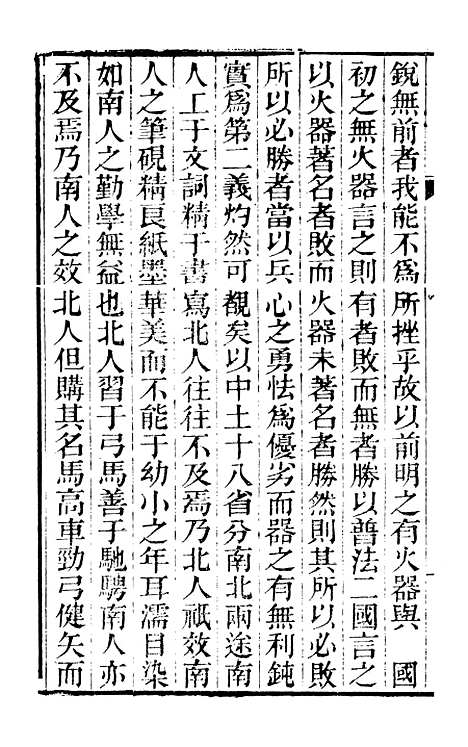 銳無前者我能不爲所挫乎故以前明之有火器與　國
初之無火器言之則有者敗而無者勝以普法二國言之
以火器著名者敗而火器未著名者勝然則其所以必敗
所以必勝者當以兵心之勇怯爲優劣而器之有無利鈍
實爲第二義灼然可覩矣以中土十八省分南北兩途南
人上于文詞精于書寫北人往往不及焉乃北人祇效南
人之筆硯精良紙墨華美而不能于幼小之年耳濡目染
如南人之勤學無益也北人習于弓馬善于馳騁南人亦
不及焉乃南人之效北人但購其名馬高車勁弓健矢而